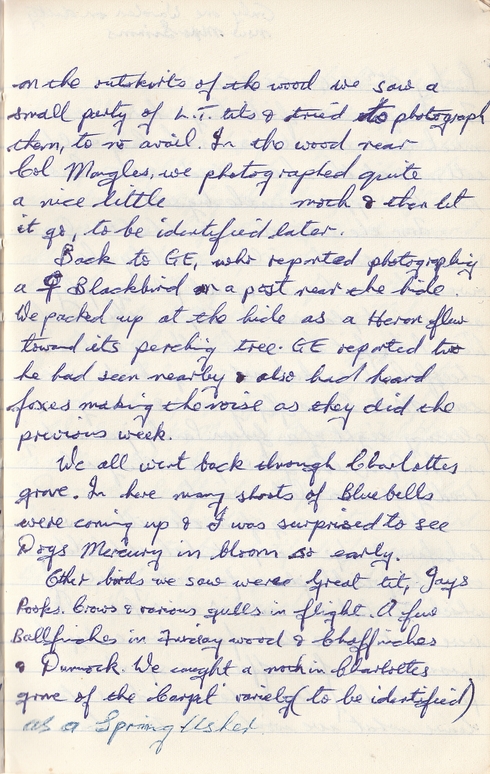 on the outskirts of the wood we saw a
small party of L.T. tits & tried to photograph
them, to no avail. In the wood near
Col Mangles, we photographed quite
a nice little moth & then let
it go, to be identified later.
Back to GE, who reported photographing
a ♀ Blackbird on a post near the hide.
We packed up at the hide as a Heron flew
toward its perching tree. GE reported two
he had seen nearby & also had heard
foxes making the noise as they did the
previous week.
We all went back through Charlottes
grove. In here many shoots of Bluebells
were coming up & I was surprised to see
Dogs Mercury in bloom so early.
Other birds we saw were Great tit, Jays
Rooks. Crows & various gulls in flight. A few
Bullfinches in wood & Chaffinches
& Dunnock. We caught a moth in Charlottes
grove of the 'Carpet' variety (to be identified)
as a Spring Usher.